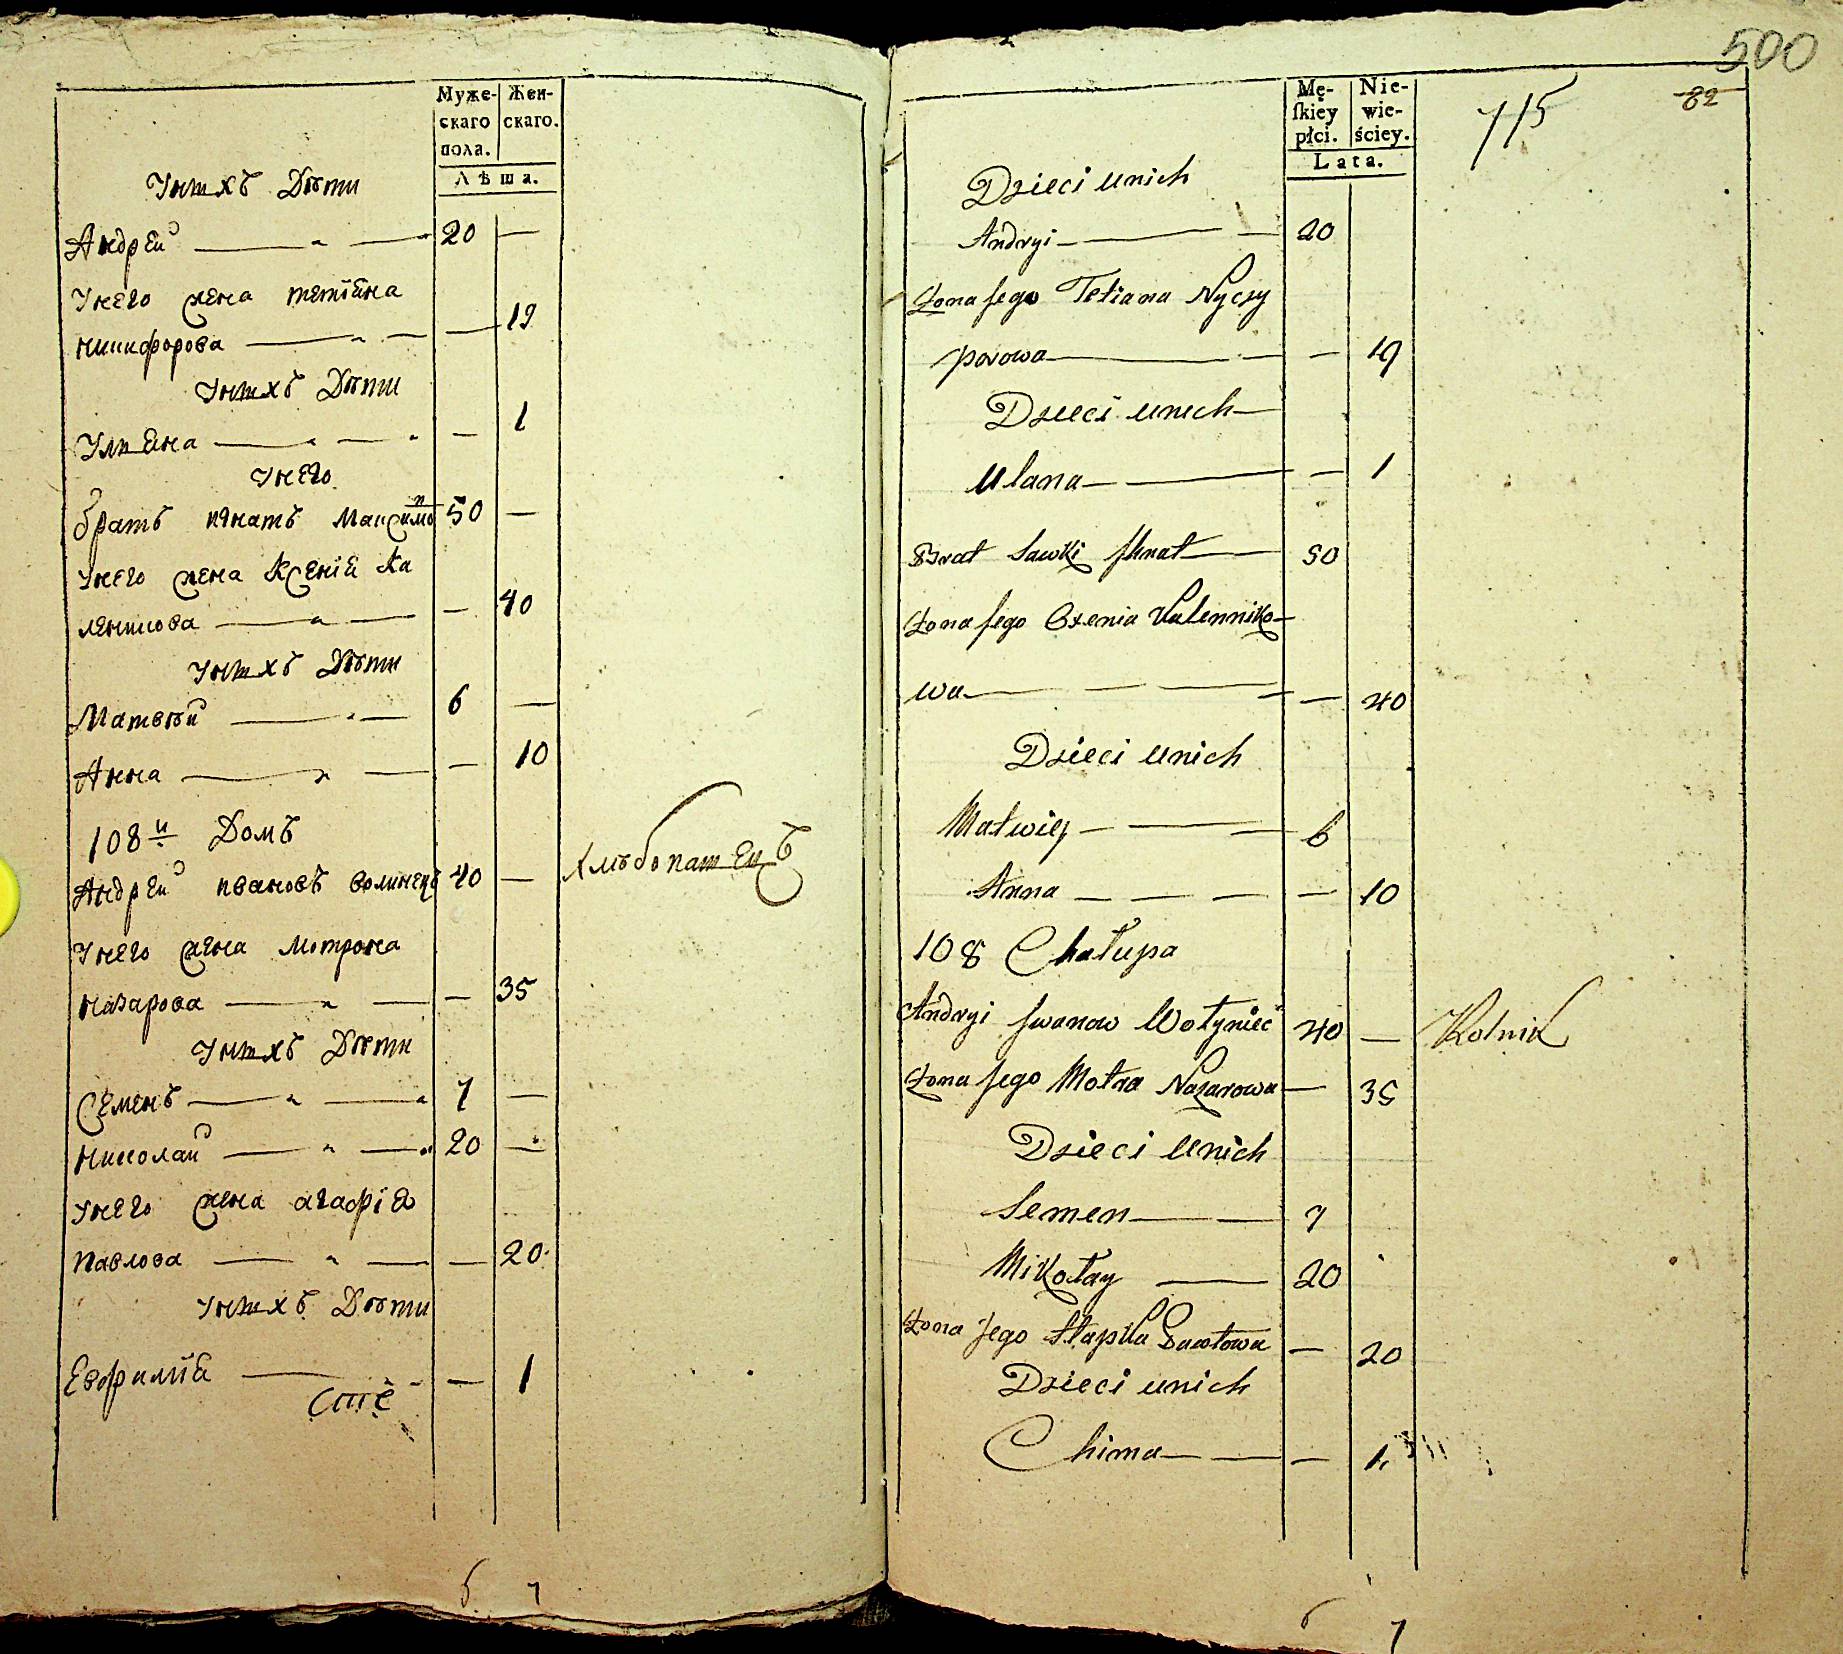 Муже-
скаго
пола.
Жен-
скаго.
Лѣта.
Унихъ Дѣти
Андрей 20 —
Унего жена тетіана
никифорова — 19
Унихъ Дѣти
Улиана — 1
Унего
братъ игнатъ Максимо 50 —
Унего жена Ксенія Ка
лени​кова — 40
Унихъ Дѣти
Матвѣй 6 —
Анна — 10
108й Домъ
Андрей ивановъ волинецъ 40 — хлѣбопашецъ
Унего жена мотрона
назарова — 35
Унихъ Дѣти
Семенъ 7 —
николай 20 —
унего жена агафія
павлова — 20
Унихъ Дѣти
Евфимия — 1
6 7
500
82
715
Mę-
skiey
płci.
Nie-
wie-
ściey.
Lata.
Dzieci unich
Andryi 20
Żona jego Tetiana Nyczy
porowa — 19
Dzieci unich
Ulana — 1
Brat Sawki Ihnat 50
Żona jego Oxenia Kalenniko-
wa — 40
Dzieci unich
Matwiey 6
Anna — 10
108 Chałupa
Andryi Iwanow Wołyniec 40 — Rolnik
Żona jego Motra Nazarowa — 35
Dzieci Unich
Semen 7
Mikołay 20
Żona jego Hapka Pawłowa — 20
Dzieci unich
Chima — 1
6 7